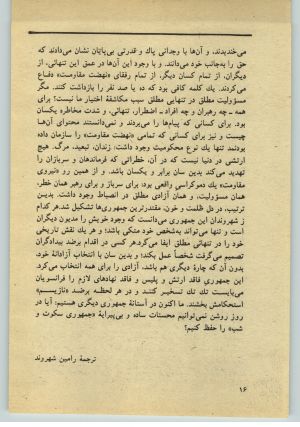 می‌خندیدند، و آن‌ها با وجدانی پاك و قدرتی بی‌پایان نشان می‌دادند که
حق را به‌جانب خود می‌دانند. و با وجود این آن‌ها در عمق این تنهائی، از
دیگران، از تمام کسان دیگر، از تمام رفقای «نهضت مقاومت» دفاع
می‌کردند. یك کلمه کافی بود که ده یا صد نفر را بازداشت کنند. مگر
مسؤولیت مطلق در تنهایی مطلق سبب مکاشفهٔ اختیار ما نیست؟ برای
همه ـ چه رهبران و چه افراد ـ اضطرار، تنهائی، و شدت مخاطره یکسان
بود. برای کسانی که پیام‌ها را می‌بردند و نمی‌دانستند محتوای آن‌ها
چیست و نیز برای کسانی که تمامی «نهضت مقاومت» را سازمان داده
بودند تنها یك نوع محکومیت وجود داشت: زندان، تبعید، مرگ. هیچ
ارتشی در دنیا نیست که در آن، خطراتی که فرماندهان و سربازان را
تهدید می‌کند بدین سان برابر و یکسان باشد. و از همین رر «نیروی
مقاومت» یك دموکراسی واقعی بود: برای سرباز و برای رهبر همان خطر،
همان مسؤولیت، و همان آزادی مطلق در انضباط وجود داشت. بدین
ترتیب، در دل ظلمت و خون، مقتدرترین جمهوری‌ها تشکیل شد. هر کدام
ز شهروندان این جمهوری می‌دانست که وجود خویش را مدیون دیگران
است و تنها می‌تواند به‌شخص خود متکی باشد؛ و هر یك نقش تاریخی
خود را در تنهائی مطلق ایفا می‌کرد. هر کسی در اقدام برضد بیدادگران
تصمیم می‌گرفت شخصاً عمل بکند؛ و بدین سان با انتخاب آزادانهٔ خود،
بدون آن که چارهٔ دیگری هم باشد، آزادی را برای همه انتخاب می‌کرد.
این جمهوری فاقد ارتش و پلیس و فاقد نهادهای لازم را فرانسویان
می‌بایست تك تك تسخیر کنند و در هر لحظه برضد «نازیسم»
استحکامش بخشند. ما اکنون در آستانهٔ جمهوری دیگری هستیم: آیا در
روز روشن نمی‌توانیم محسنات ساده و بی‌پیرایهٔ «جمهوری سکوت و
شب» را حفظ کنیم؟
ترجمهٔ رامین شهروند
۱۶